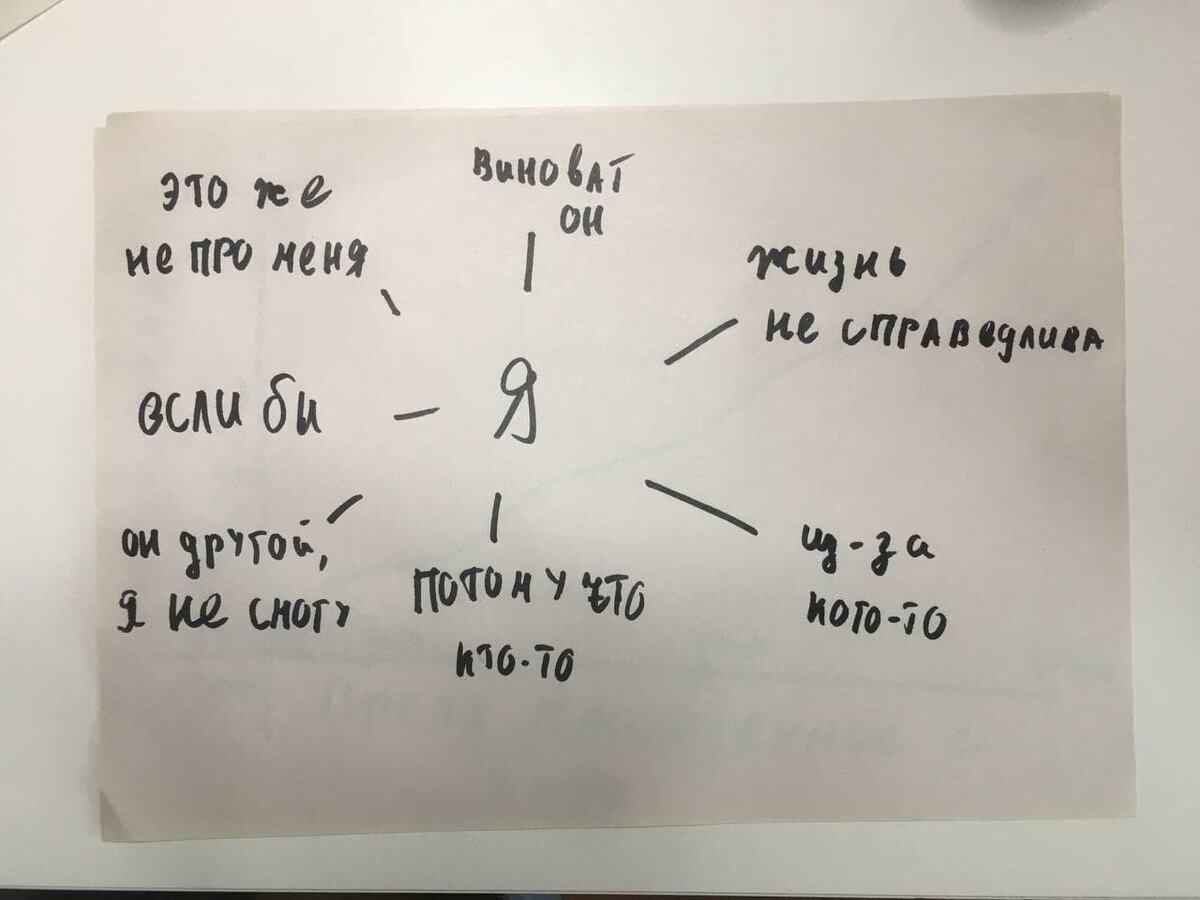 это же
не про меня
виноват
он
жизнь
не справедлива
если би
Я
он другой,
я не смогу
потому что
кто-то
из-за
кого-то